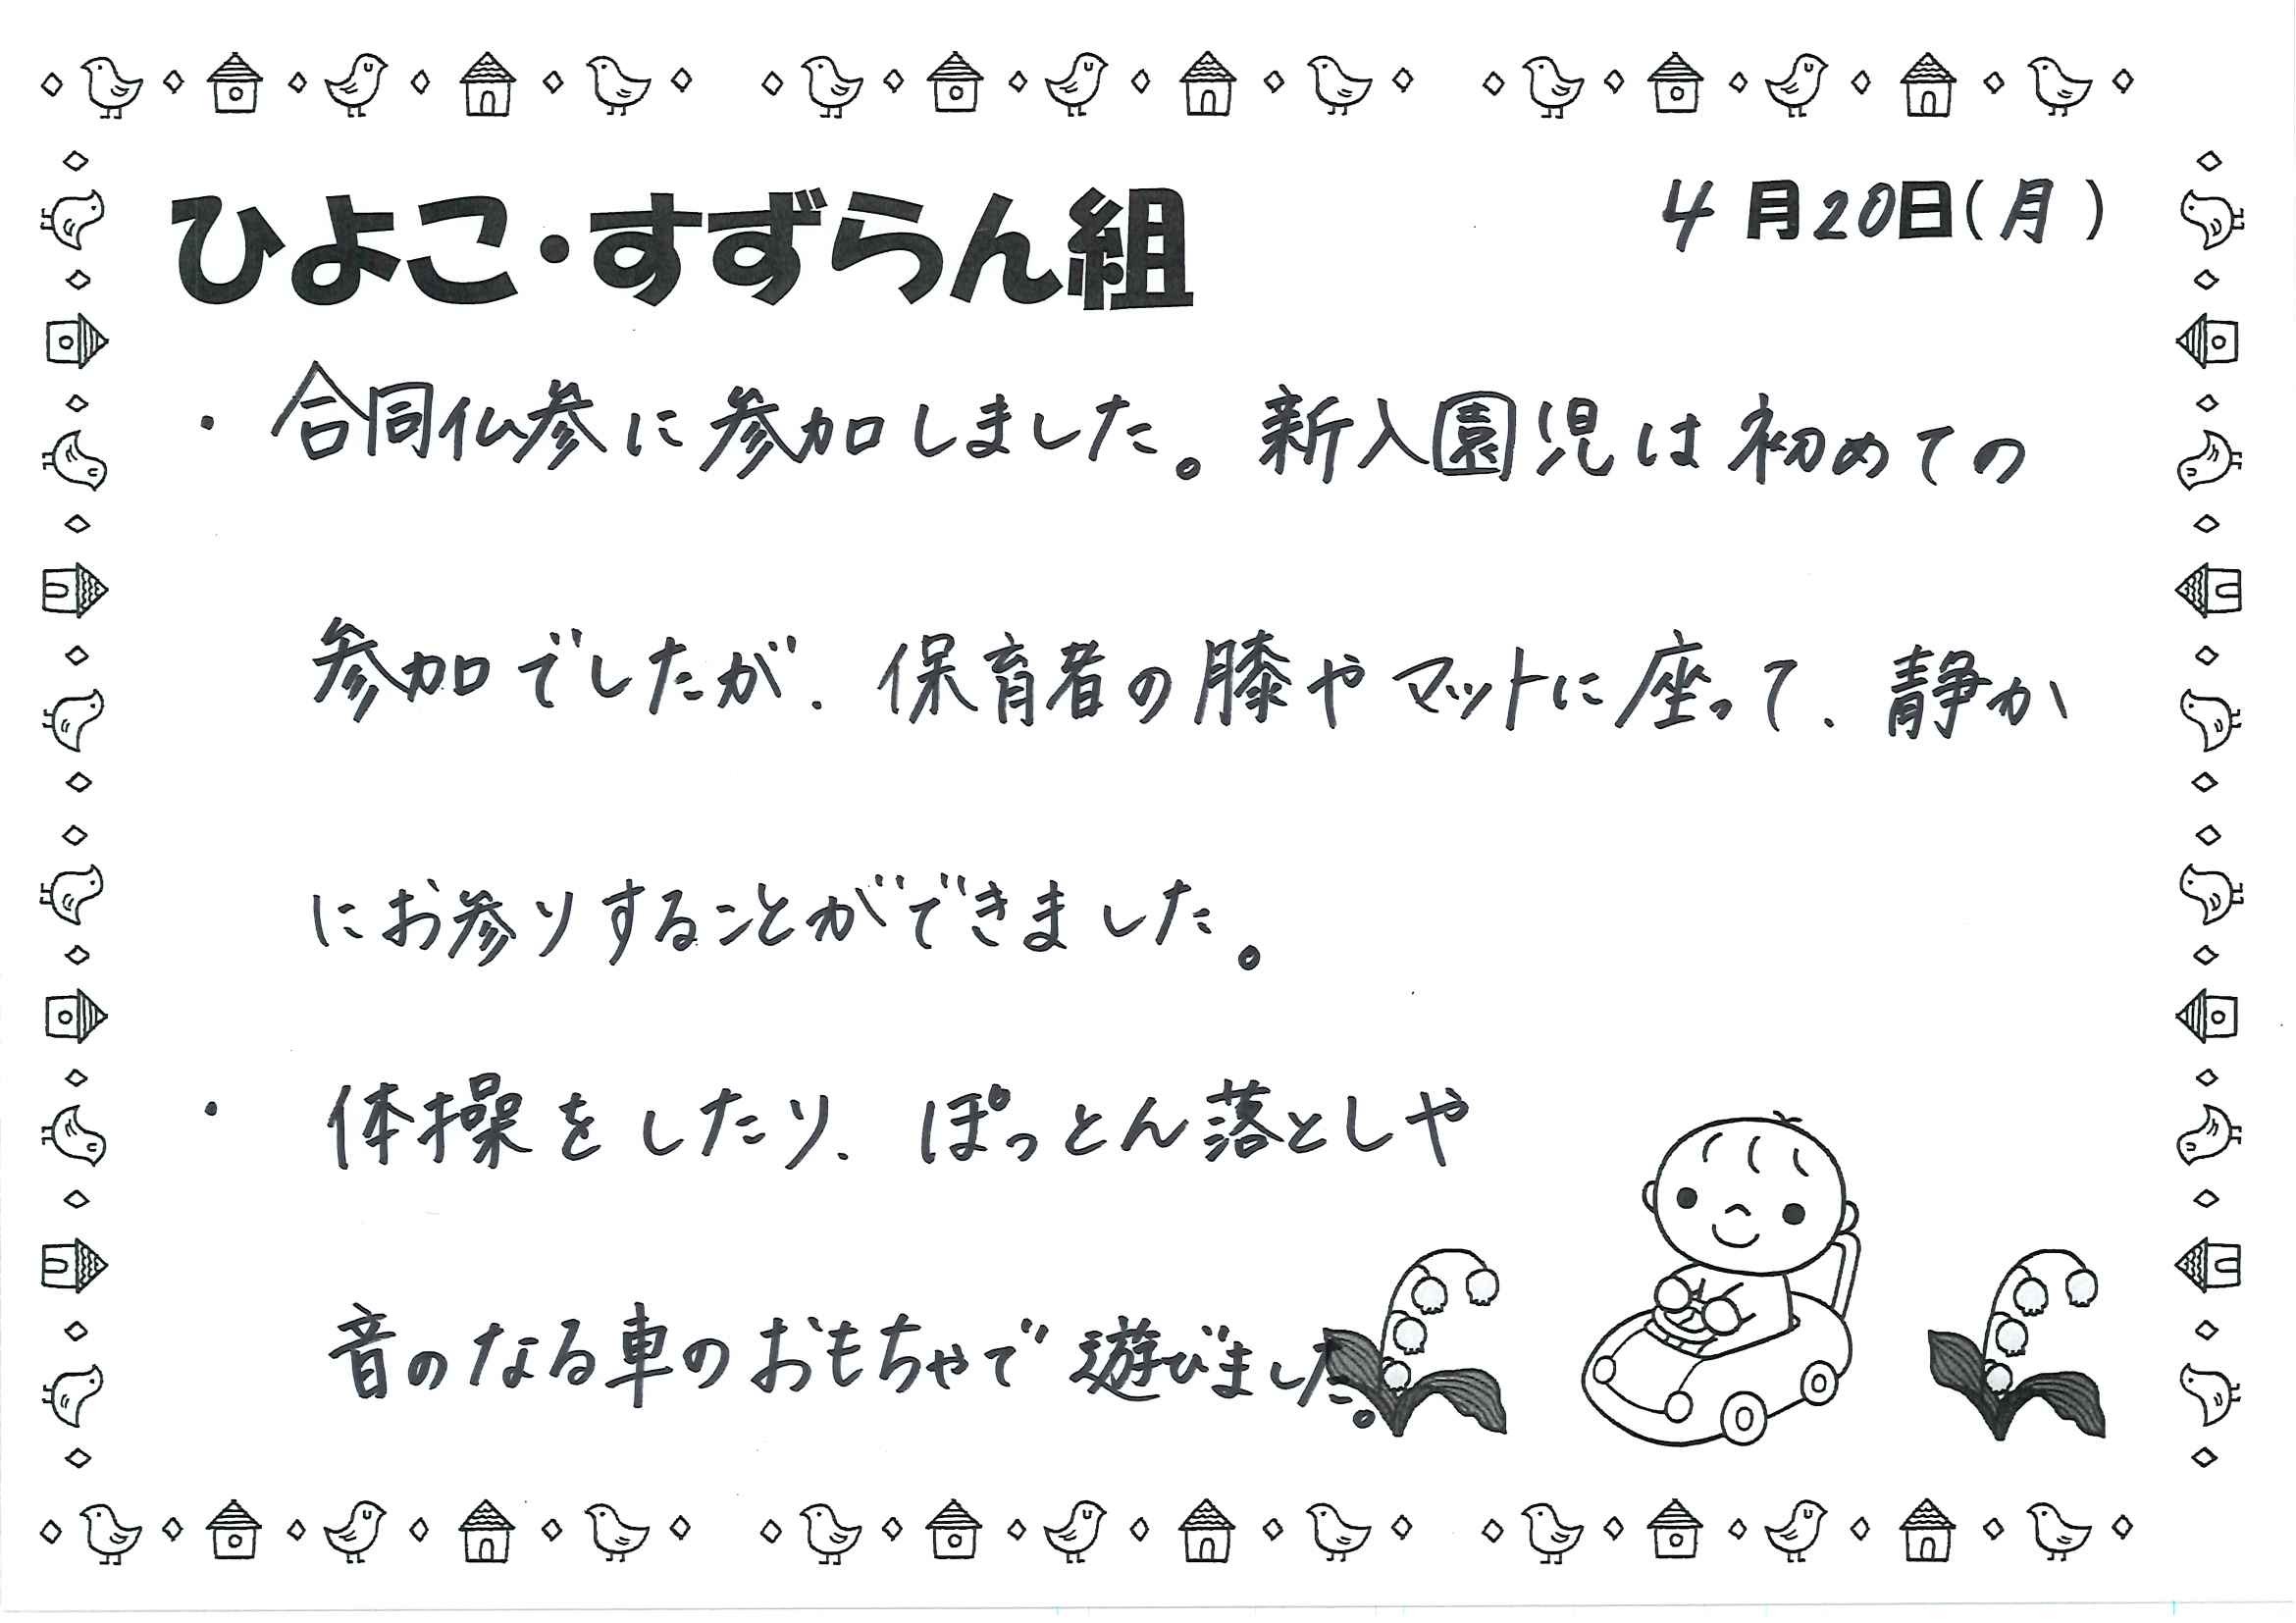 ひよこ・すずらん組
4月20日(月)
・合同仏参に参加しました。新入園児は初めての
参加でしたが、保育者の膝やマットに座って、静か
にお参りすることができました。
・体操をしたり、ぽっとん落としや
音のなる車のおもちゃで遊びました。